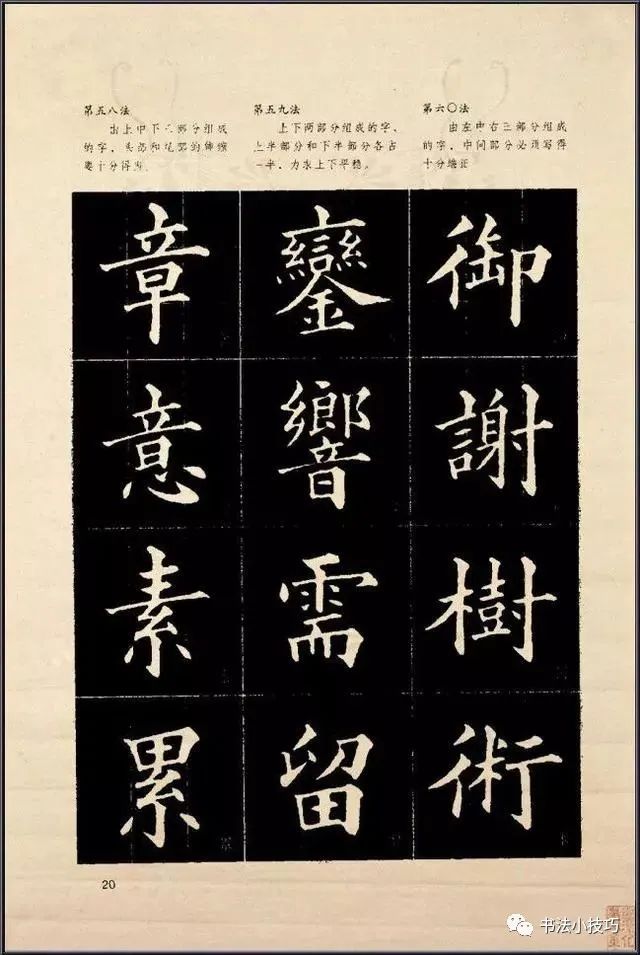 第五八法
由上中下三部分组成
的字,头部和尾部的伸缩
要十分得当
第五九法
上下两部分组成的字、
上半部分和下半部分各占
一半,力求上下平稳。
第六〇法
由左中右三部分组成
的字,中间部分必须写得
十分端正
章 鑾 御
意 響 謝
素 需 樹
累 留 術
20
书法小技巧